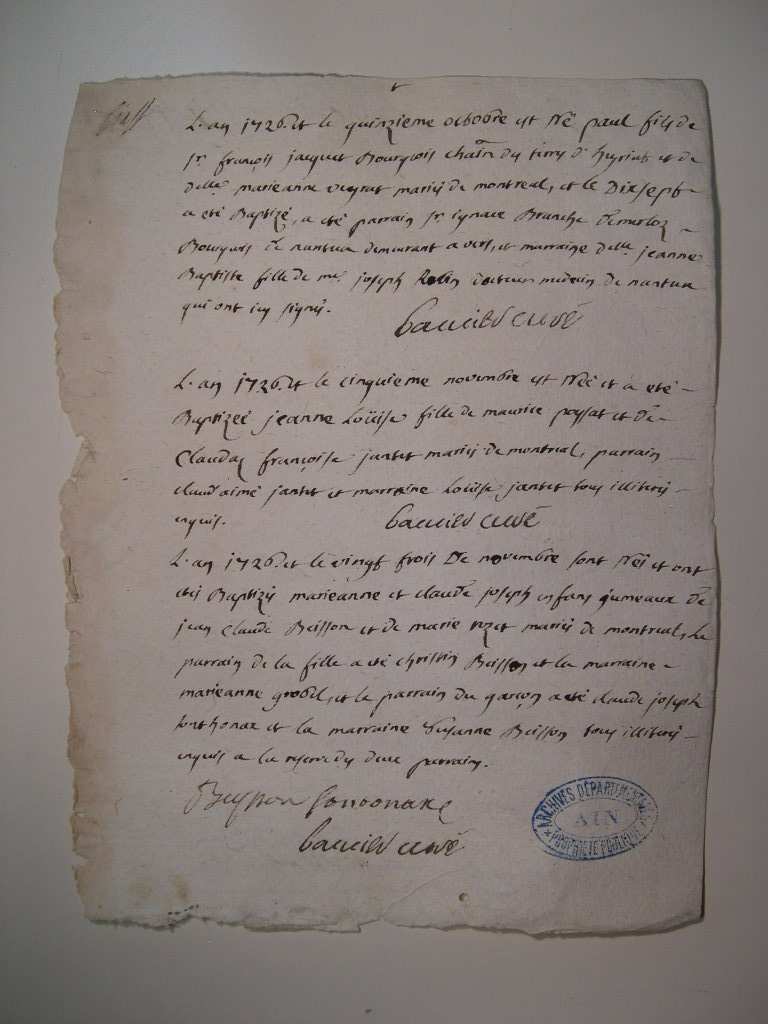 L'an 1726. et le quinzieme octobre est Né paul fils de
sr. françois jacquet Bourgeois chain des terres d'heyriat et de
delle marieanne veyrat mariés de montreal, et le Dixsept
a eté Baptizé, a eté parrain sr. ignace Branche
Bourgeois de nantua demeurant a vers, et marraine delle. jeanne
Baptiste fille de mr. joseph Robin docteur medecin de nantua
qui ont icy signés.
curé
L'an 1726. et le cinquieme novembre est Née et a eté
Baptizeé jeanne Loüise fille de maurice payssat et de
Claudaz françoise jantet mariés de montreal, parrain
claud aimé jantet et marraine Loüise jantet tous illiterés
enquis.
curé
L'an 1726. et le vingt trois De novembre sont Néz et ont
etéz Baptizés marieanne et claude joseph enfans jumeaux de
jean Claude Beisson et de marie mariés de montreal, Le
parrain de la fille a eté christin Beisson et la marraine
marieanne grobel, et le parrain du garçon a eté claude joseph
sonthonax et la marraine Susanne Beisson tous illiterés
enquis a la reserve des deux parrain.
Beysson sontonaxe
curé
ARCHIVES DÉPARTEMENTALES
AIN
PROPRIÉTÉ PUBLIQUE